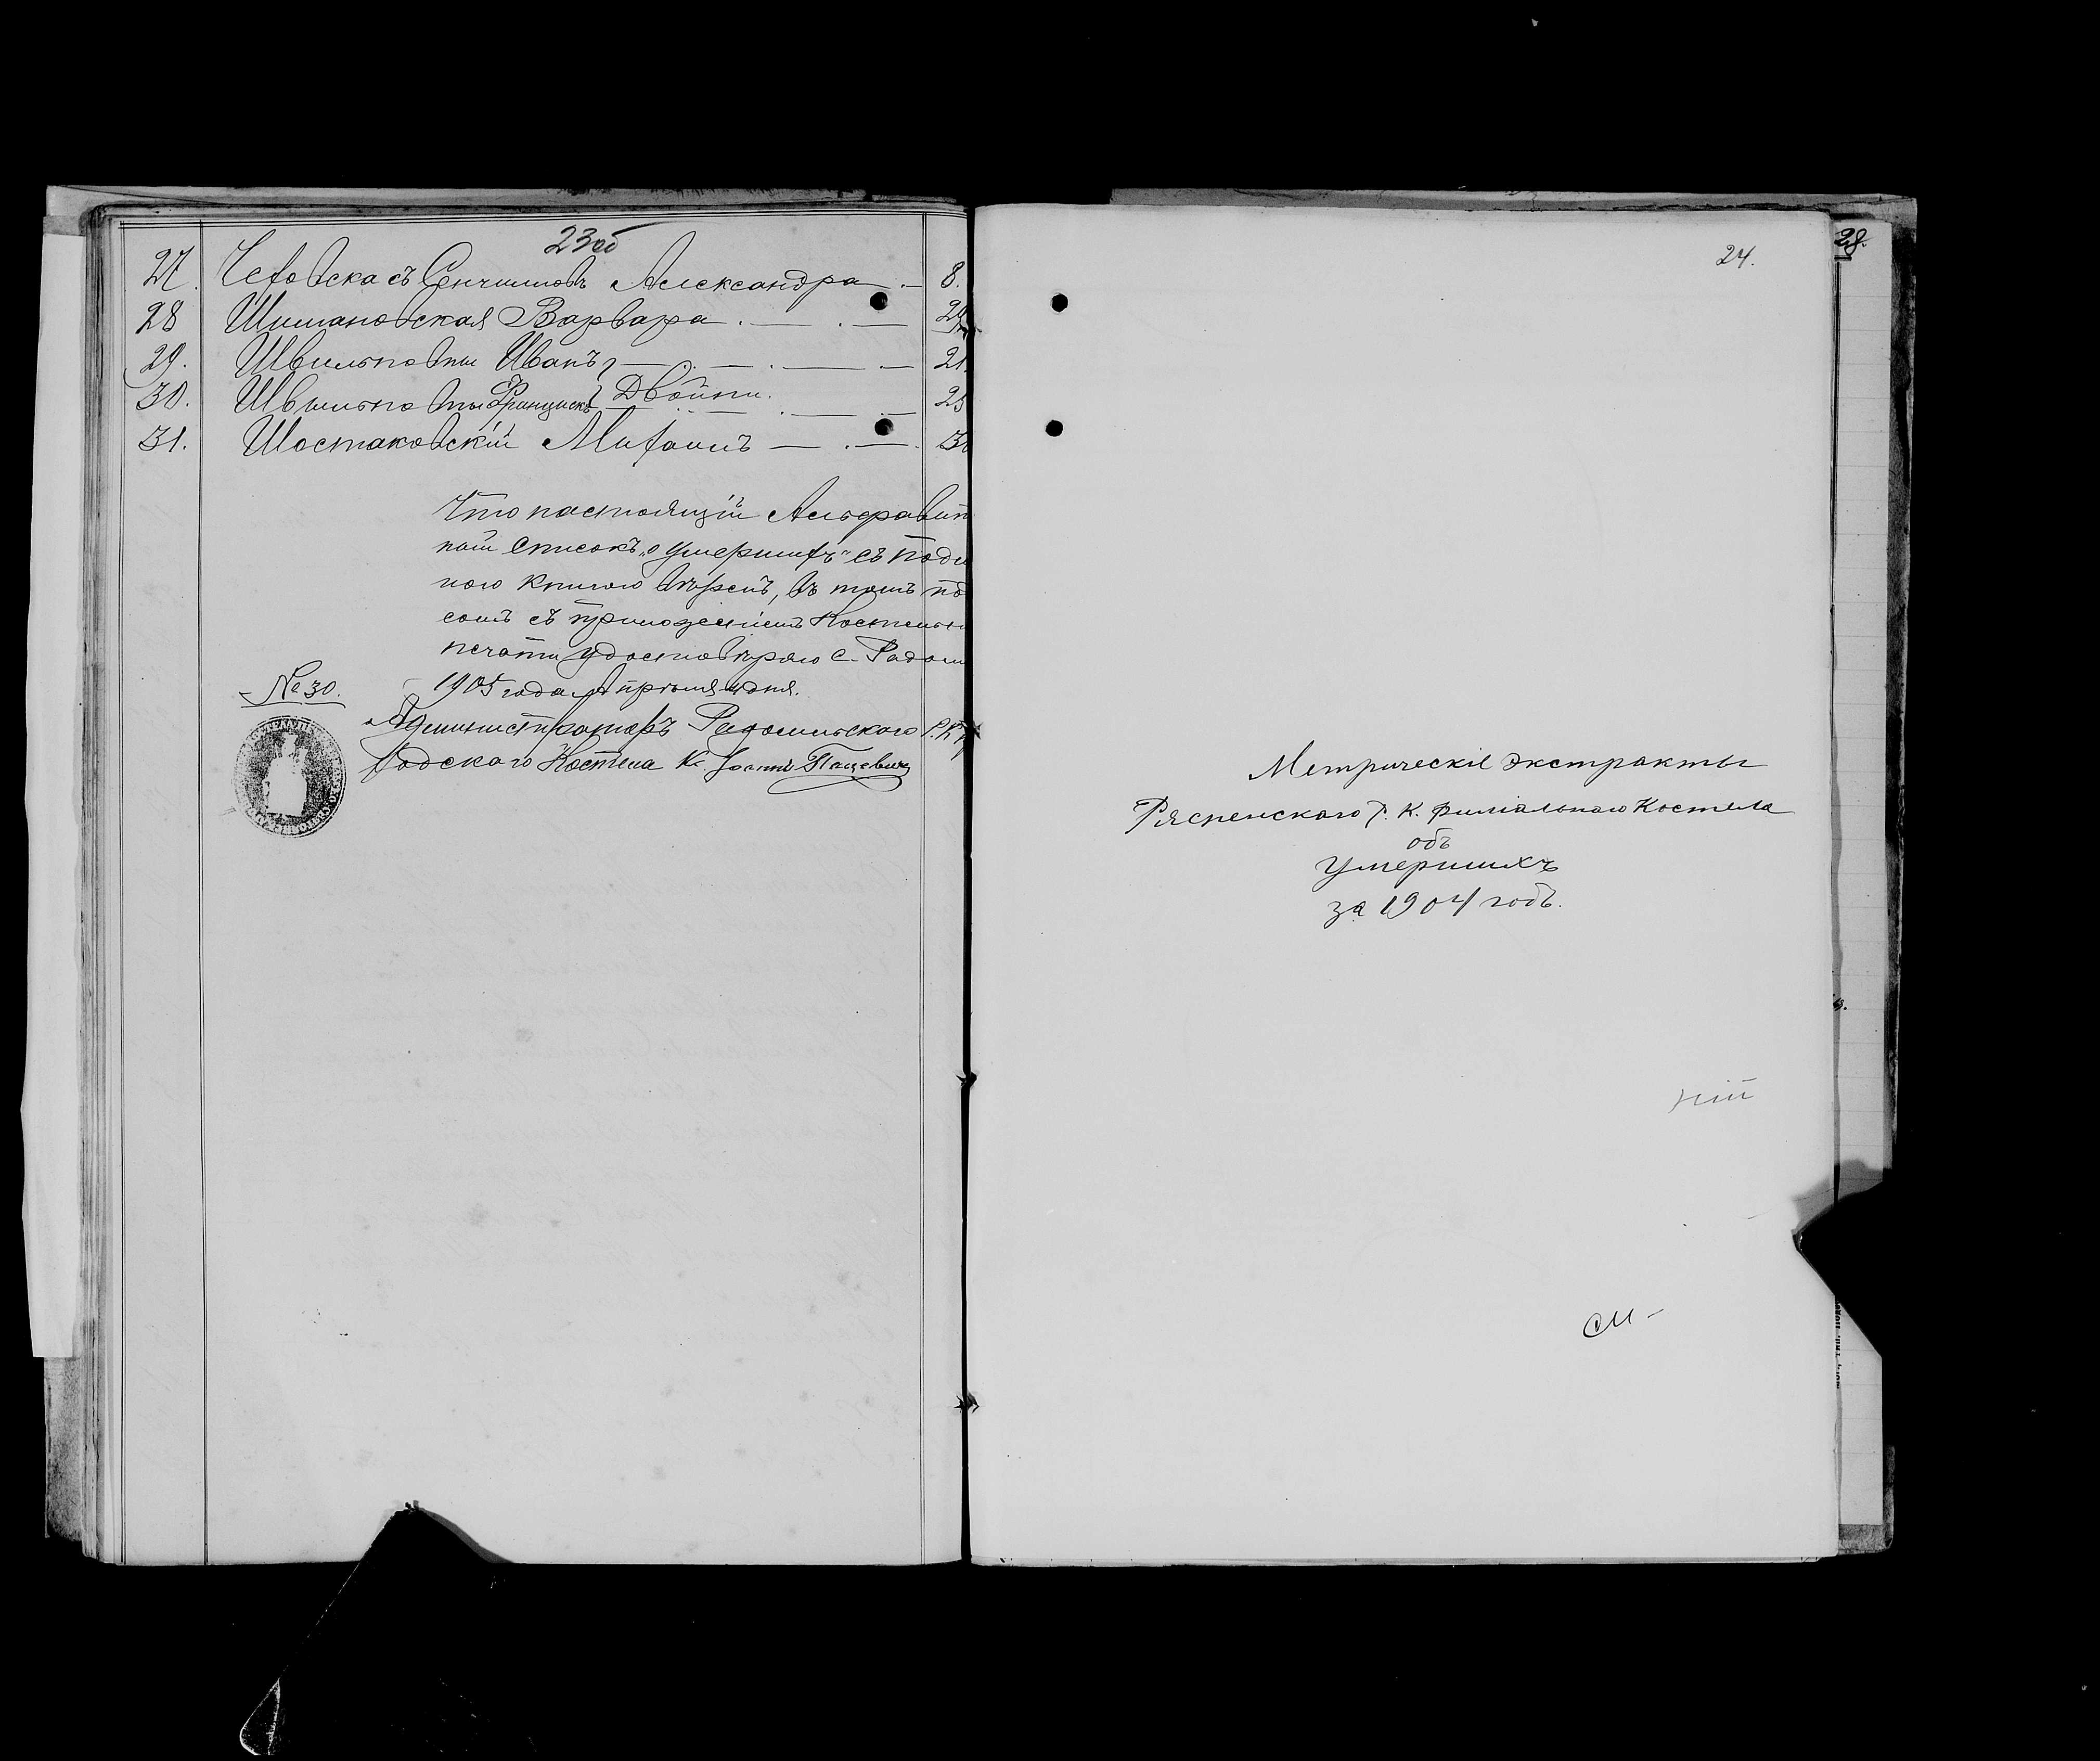 23об
27. Чеховска съ Сенчиловъ Александра 8.
28 Шимановская Варвара
29. Швильповны Иванъ 21.
30. Швильповны Францискъ } Двойни.
31. Шостаковскій Михаилъ
Что настоящій Алфавит
ный списокъ „о умершихъ“ съ подл
ною книгою вѣренъ, въ томъ по
сомъ съ приложеніемъ Костельн
печати удостовѣряю С. Радом
№ 30. 1905 года Апрѣля 4 дня.
Администраторъ Радомльскаго Р. К. П
ходскаго Костела К. Іоаннъ Пацевичъ
24.
Метрическіе экстракты
Рясненскаго Р. К. филіальнаго Костела
объ
умершихъ
за 1904 годъ.
ній
см-
28.